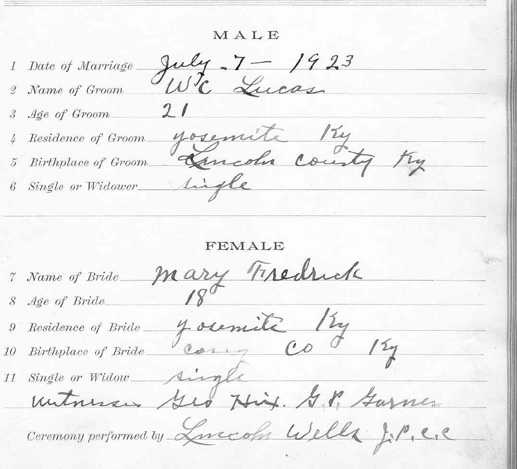 MALE
1 Date of Marriage July -7- 1923
2 Name of Groom WC Lucas
3 Age of Groom 21
4 Residence of Groom yosemite Ky
5 Birthplace of Groom Lincoln county Ky
6 Single or Widower single
FEMALE
7 Name of Bride Mary Fredrick
8 Age of Bride 18
9 Residence of Bride yosemite Ky
10 Birthplace of Bride casey CO Ky
11 Single or Widow single
Witnesses Geo Hix. G.P. Garner
Ceremony performed by Lincoln Wells J.P.C.C